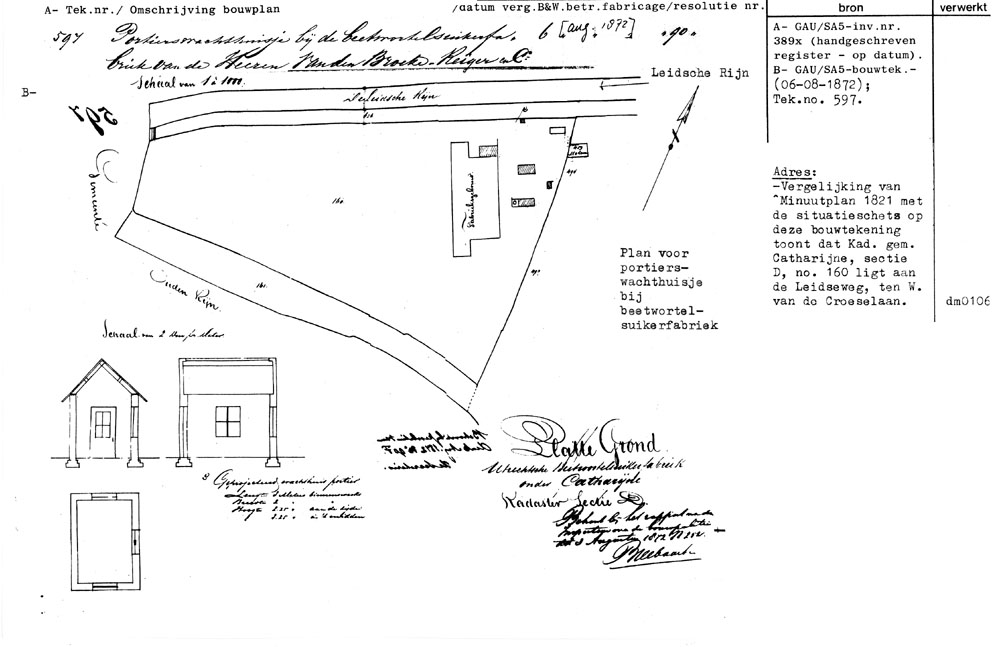 A- Tek.nr./ Omschrijving bouwplan
/datum verg.B&W.betr.fabricage/resolutie nr.
bron
verwerkt
597 Portierswachthuisje bij de beetwortelsuikerfa-
6 [aug. 1872]
"90"
briek van de Heeren Van den Broeke-Reiger en Co.
A- GAU/SA5-inv.nr.
389x (handgeschreven
register - op datum).
B- GAU/SA5-bouwtek.-
(06-08-1872);
Tek.no. 597.
B-
Schaal van 1 à 1000.
Leidsche Rijn
De Leidsche Rijn
597
Gemeente
Fabrieksgebouw
160.
161.
Ouden Rijn.
Adres:
-Vergelijking van
^Minuutplan 1821 met
de situatieschets op
deze bouwtekening
toont dat Kad. gem.
Catharijne, sectie
D, no. 160 ligt aan
de Leidseweg, ten W.
van de Croeselaan.
dm0106
Plan voor
portiers-
wachthuisje
bij
beetwortel-
suikerfabriek
Schaal van 2 
Platte Grond
Utrechtsche Beetwortelsuikerfabriek
onder Catharijne
Kadaster Sectie D.
Geprojecteerd wachthuis portier
Lengte 3 Meters binnenwerks
Breedte 2 "
Hoogte 2.25 " aan de zijde
3.25 " in 't midden
Behoort bij het rapport van den
Augustus 1872 N